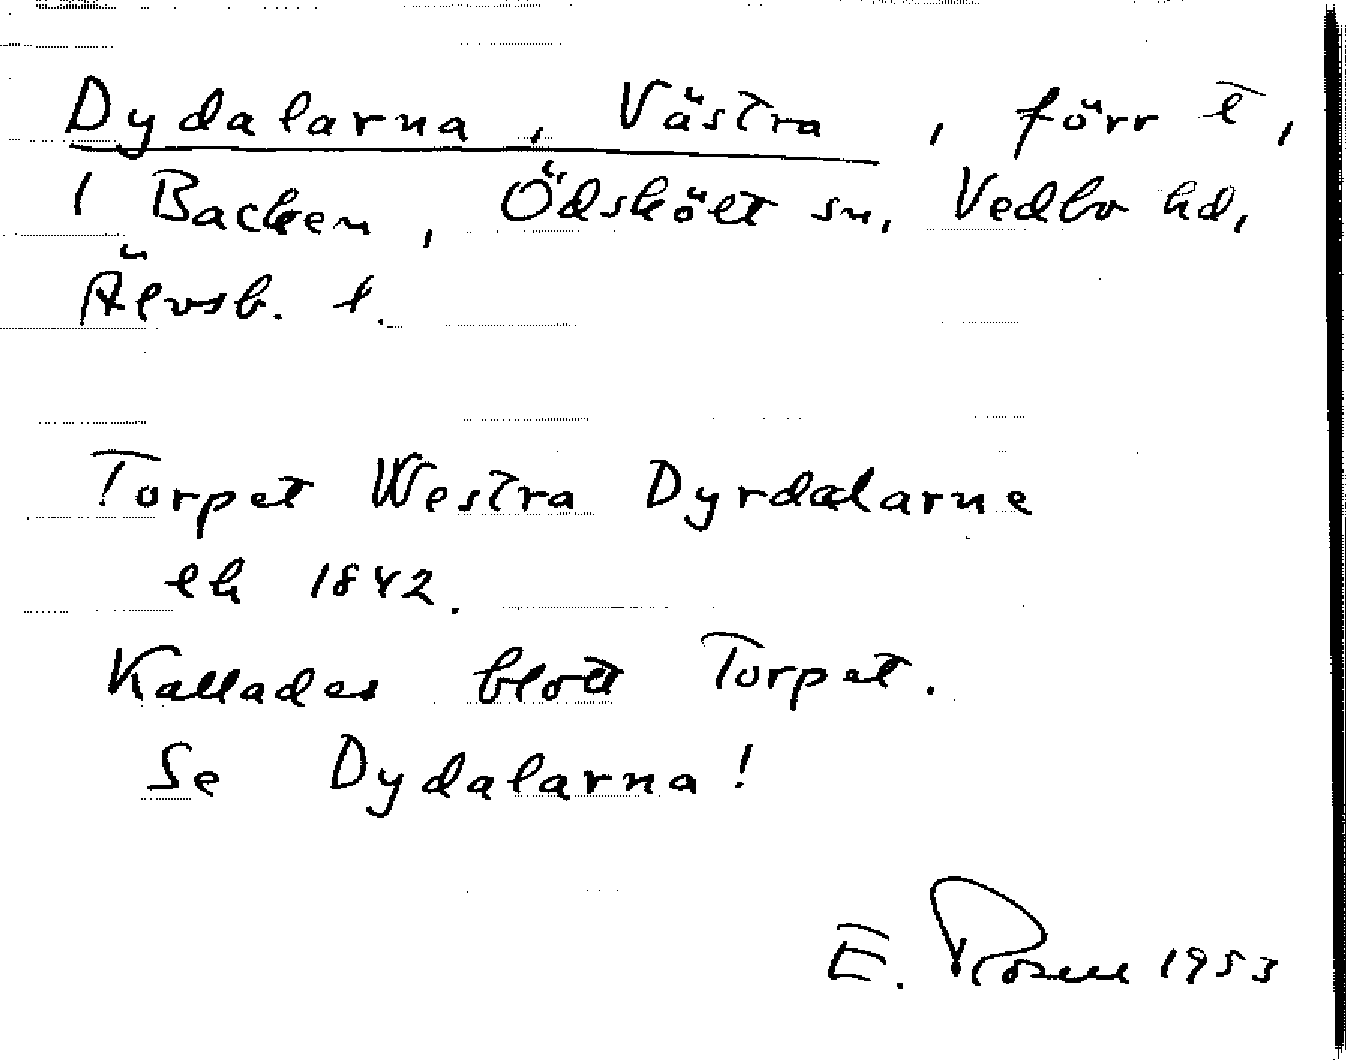 Dydalarna, Västra, förr t,
1 Backen, Ödskölt sn, Vedbo hd,
Älvsb. l.
Torpet Westra Dyrdalarne
lh 1842.
Kallades blott Torpet.
Se Dydalarna!
E. Rosell 1953